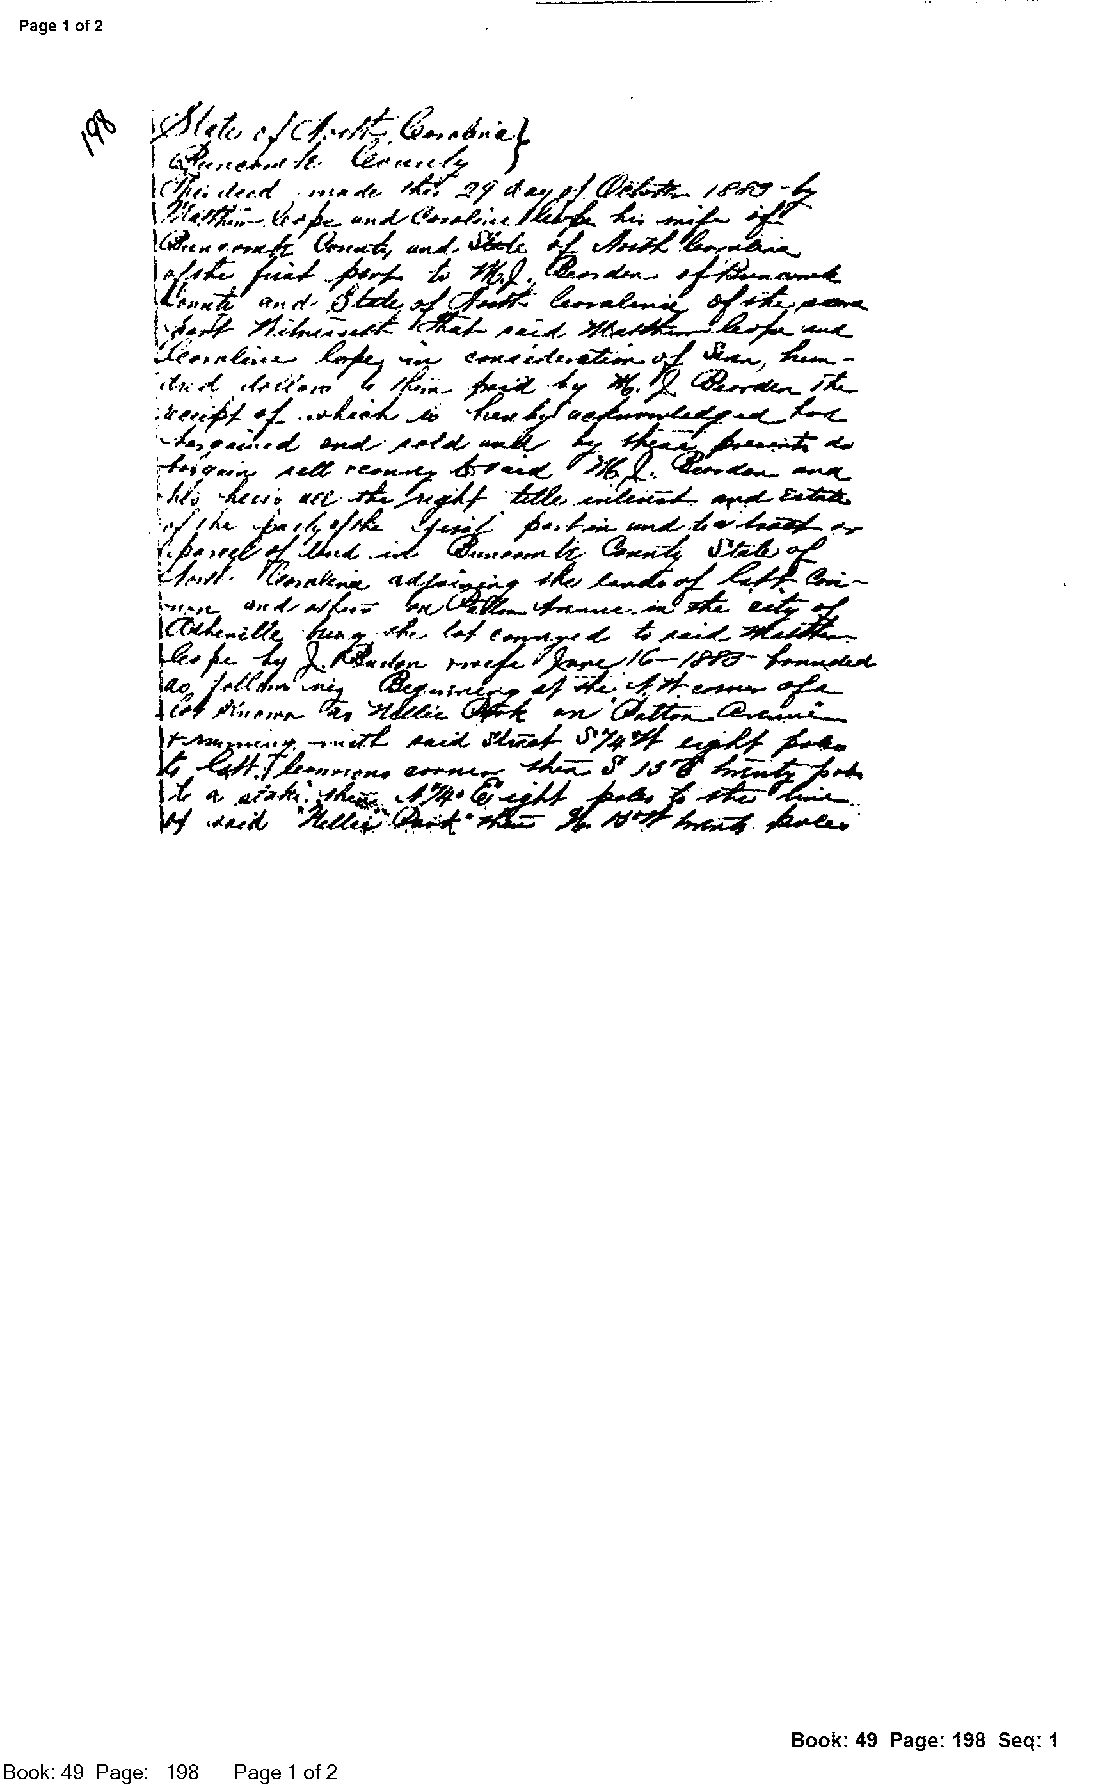 Page 1 of 2
198
State of North Carolina
Buncombe County
This deed made this 29 day of October 1883 by
Matthew Cope and Caroline Cope his wife of
Buncombe County and State of North Carolina
of the first part to M. J. Bearden of Buncomb
County and State of North Carolina of the
part Witnesseth that said Matthew Cope and
Caroline Cope in consideration of hun-
dred dollars to them paid by M. J. Bearden the
receipt of which is hereby acknowledged has
bargained and sold and by these presents do
bargain sell convey to said M. J. Bearden and
his heirs all the right title interest and Estate
of the party of the first part in and to a tract or
parcel of land in Buncombe County State of
North Carolina adjoining the lands of Capt
and others on Patton Avenue in the city of
Asheville being the lot conveyed to said Matthew
Cope by J. wife June 16-1883- bounded
as following Beginning at the N.W. corner of a
lot Known as Nellie Park on Patton Avenue
running with said Street S 74 W eight poles
to Capt. corner then S 15 E twenty poles
to a stake then N 74° E eight poles to the line
of said "Nellie Park" then N. 15° W twenty poles
Book: 49 Page: 198 Seq: 1
Book: 49 Page: 198 Page 1 of 2